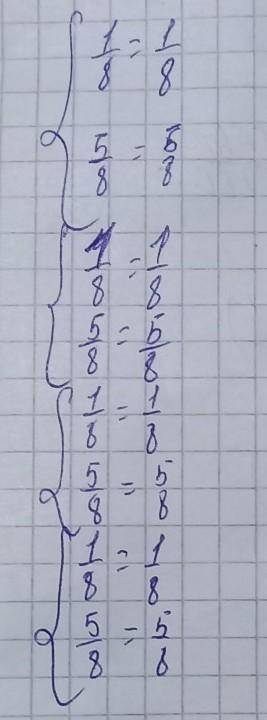 1/8 = 1/8
5/8 = 5/8
1/8 = 1/8
5/8 = 5/8
1/8 = 1/8
5/8 = 5/8
1/8 = 1/8
5/8 = 5/8